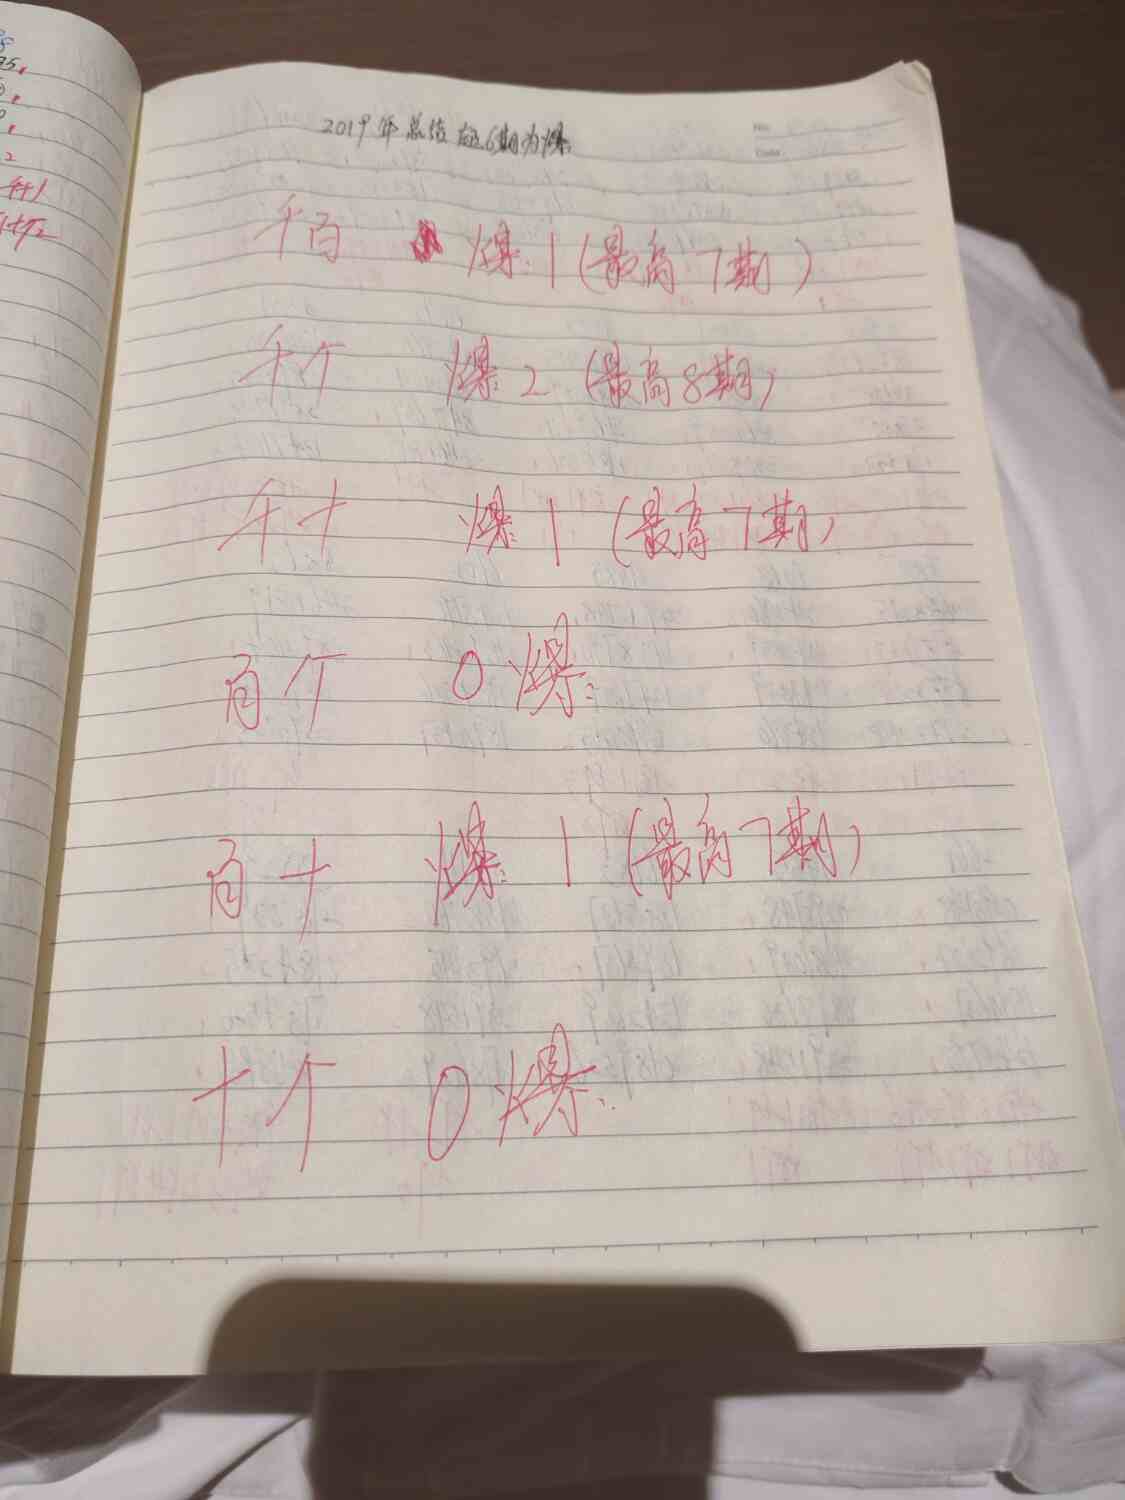 2019年总结 超6期为爆
千百 爆1(最高7期)
千个 爆2(最高8期)
千十 爆1(最高7期)
百个 0爆
百十 爆1(最高7期)
十个 0爆
No.
Date